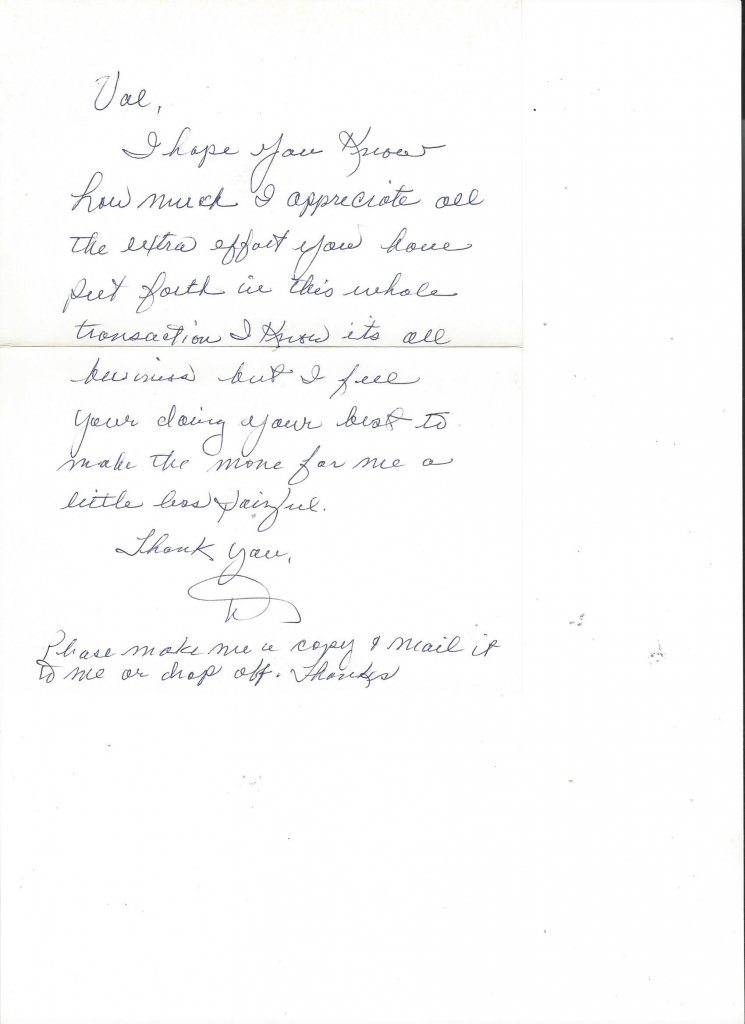 Val,
I hope you know
how much I appreciate all
the extra effort you have
put forth in this whole
transaction I know its all
business but I feel
your doing your best to
make the move for me a
little less painful.
Thank you,
Please make me a copy & mail it
to me or drop off. Thanks